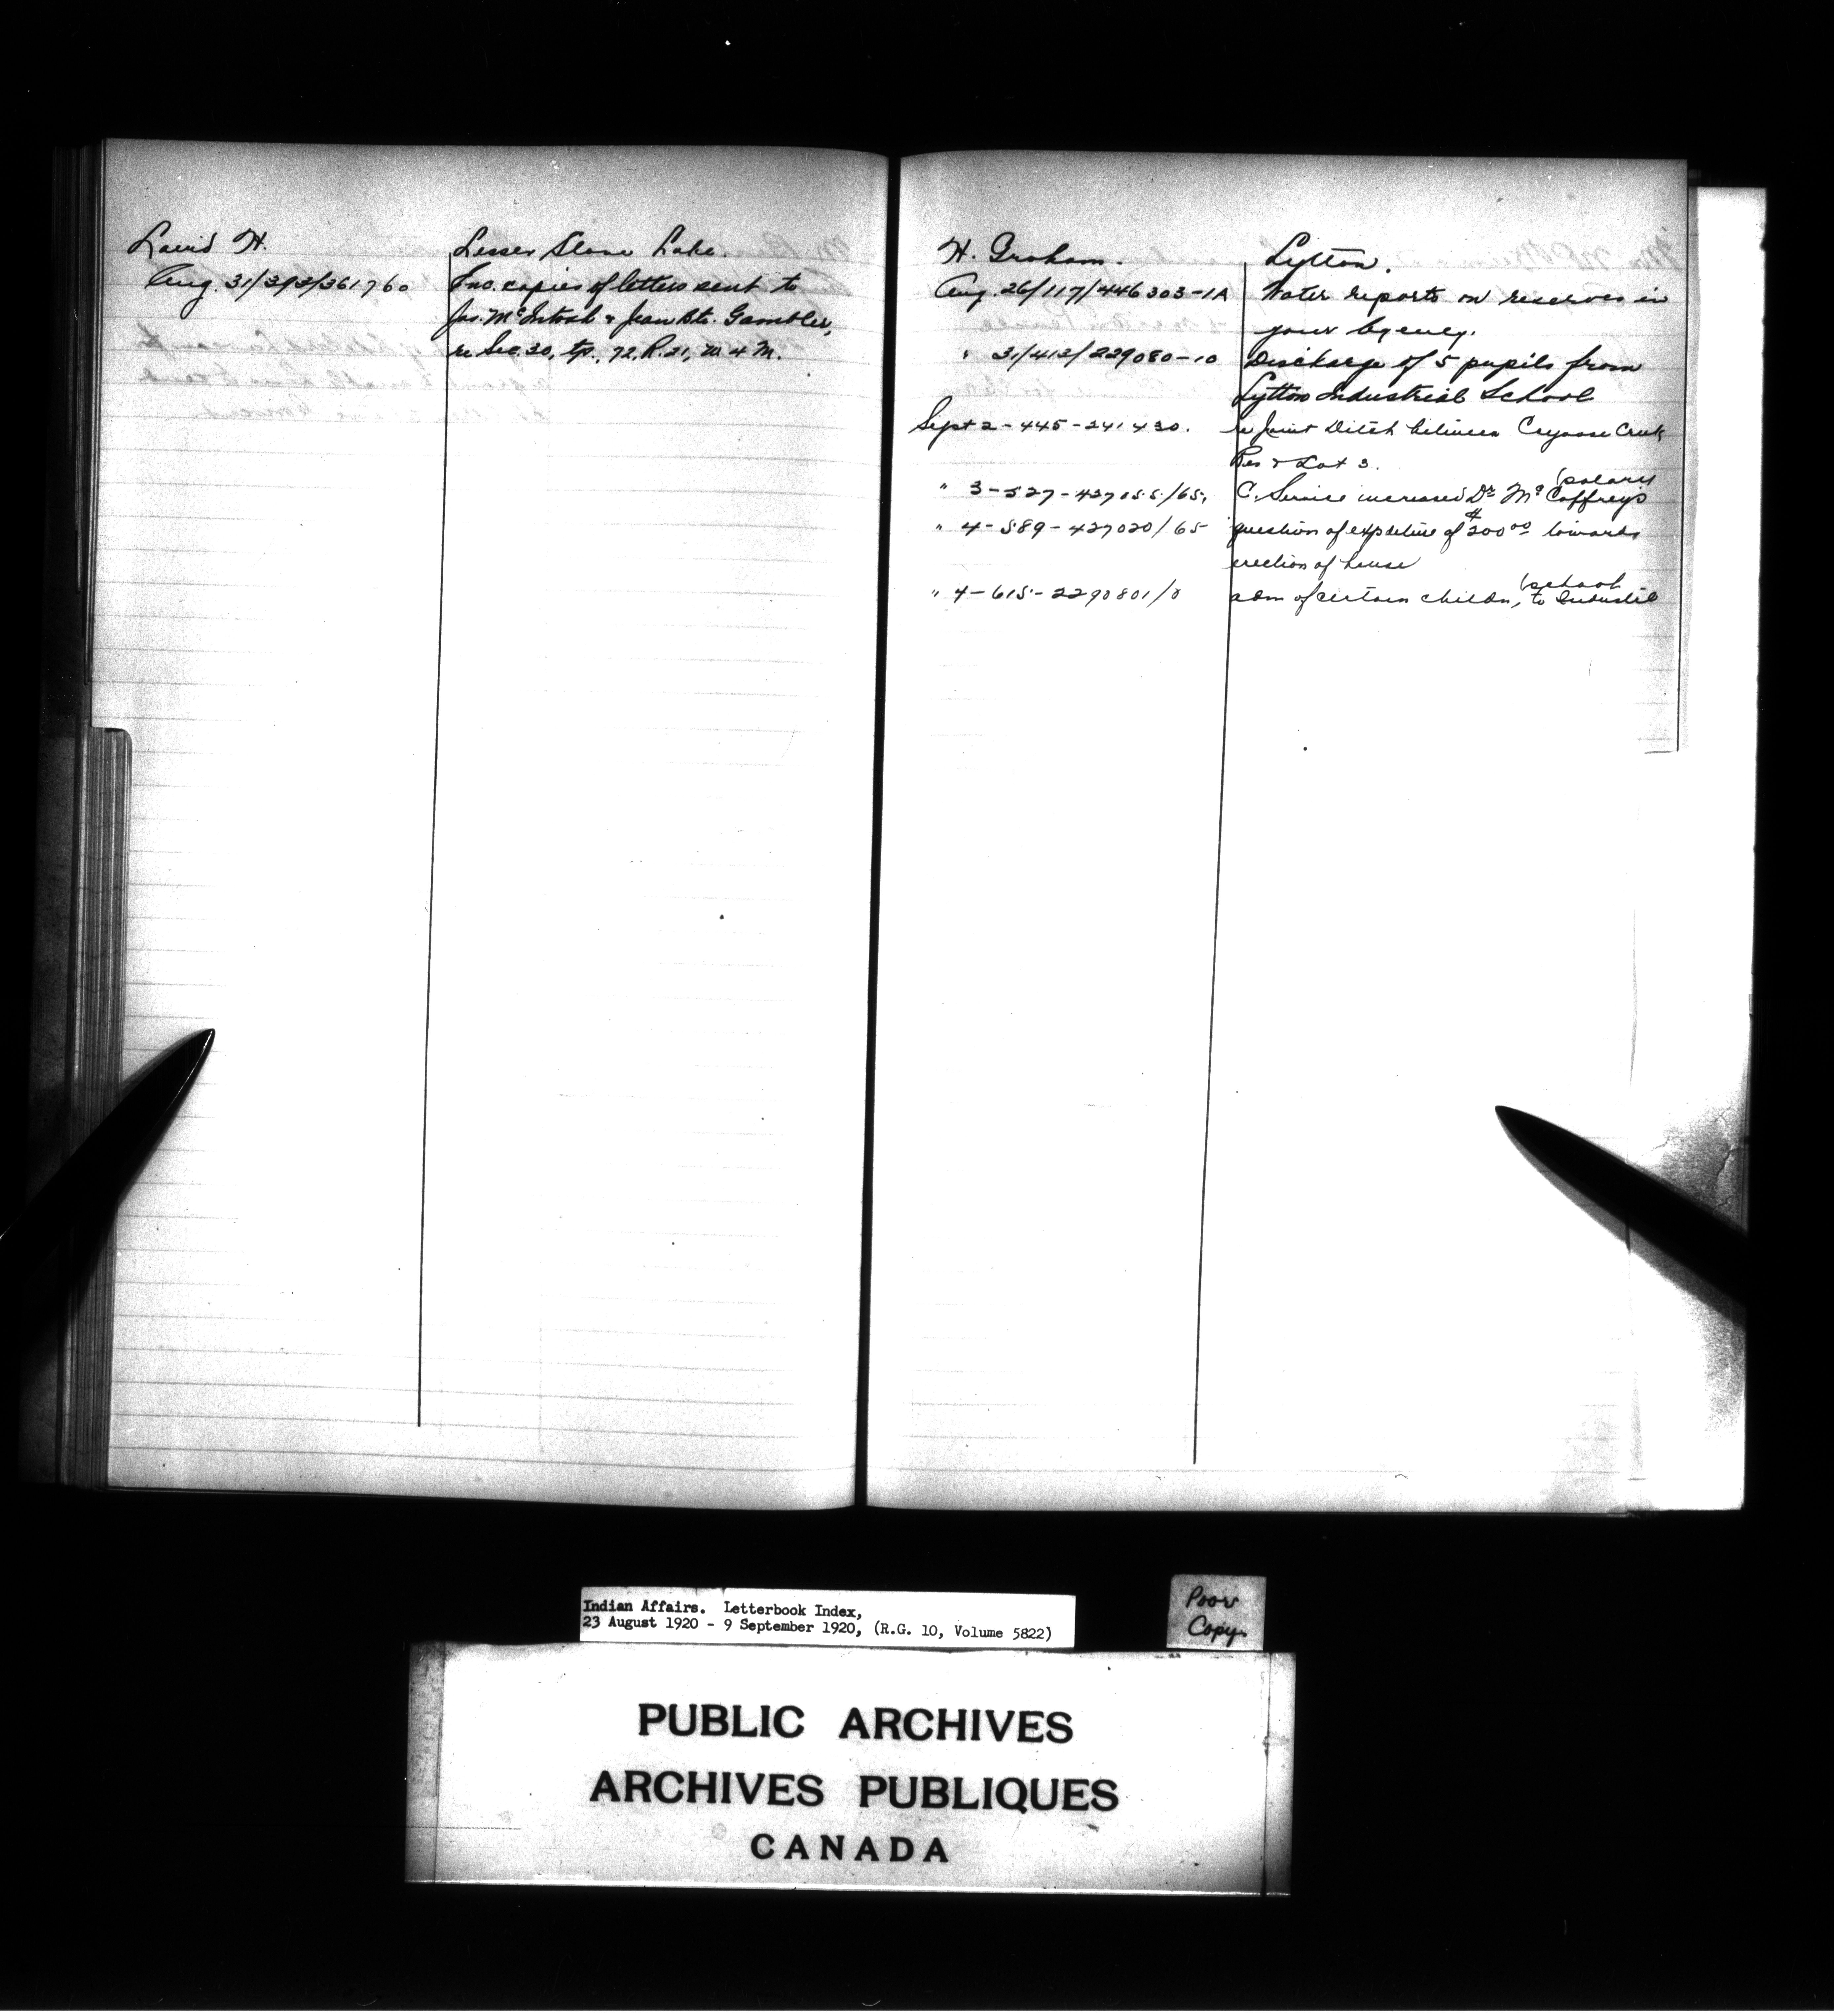 Laird H.
Lesser Slave Lake.
Aug. 31/393/361760
Enc. copies of letters sent to
Jas. McIntosh & Jean Bte. Gambler,
re Sec. 30, tp., 72. R. 21, W 4 M.
H. Graham.
Lytton.
Aug. 26/117/446303-1A
Water reports on reserves in
your Agency.
" 31/412/229080-10
Discharge of 5 pupils from
Lytton Industrial School
Sept 2-445-241430.
re Joint Ditch between Cayoose Creek
Res & Lot 3.
" 3-527-427055/65,
C. Service increased Dr McCaffreys
(salary
" 4-589-427020/65
question of expditure of $200.00 towards
erection of house
" 4-615-2290801/0
adm of certain childn, to Industil
(school
Indian Affairs. Letterbook Index,
23 August 1920 - 9 September 1920, (R.G. 10, Volume 5822)
Poor
Copy.
PUBLIC ARCHIVES
ARCHIVES PUBLIQUES
CANADA